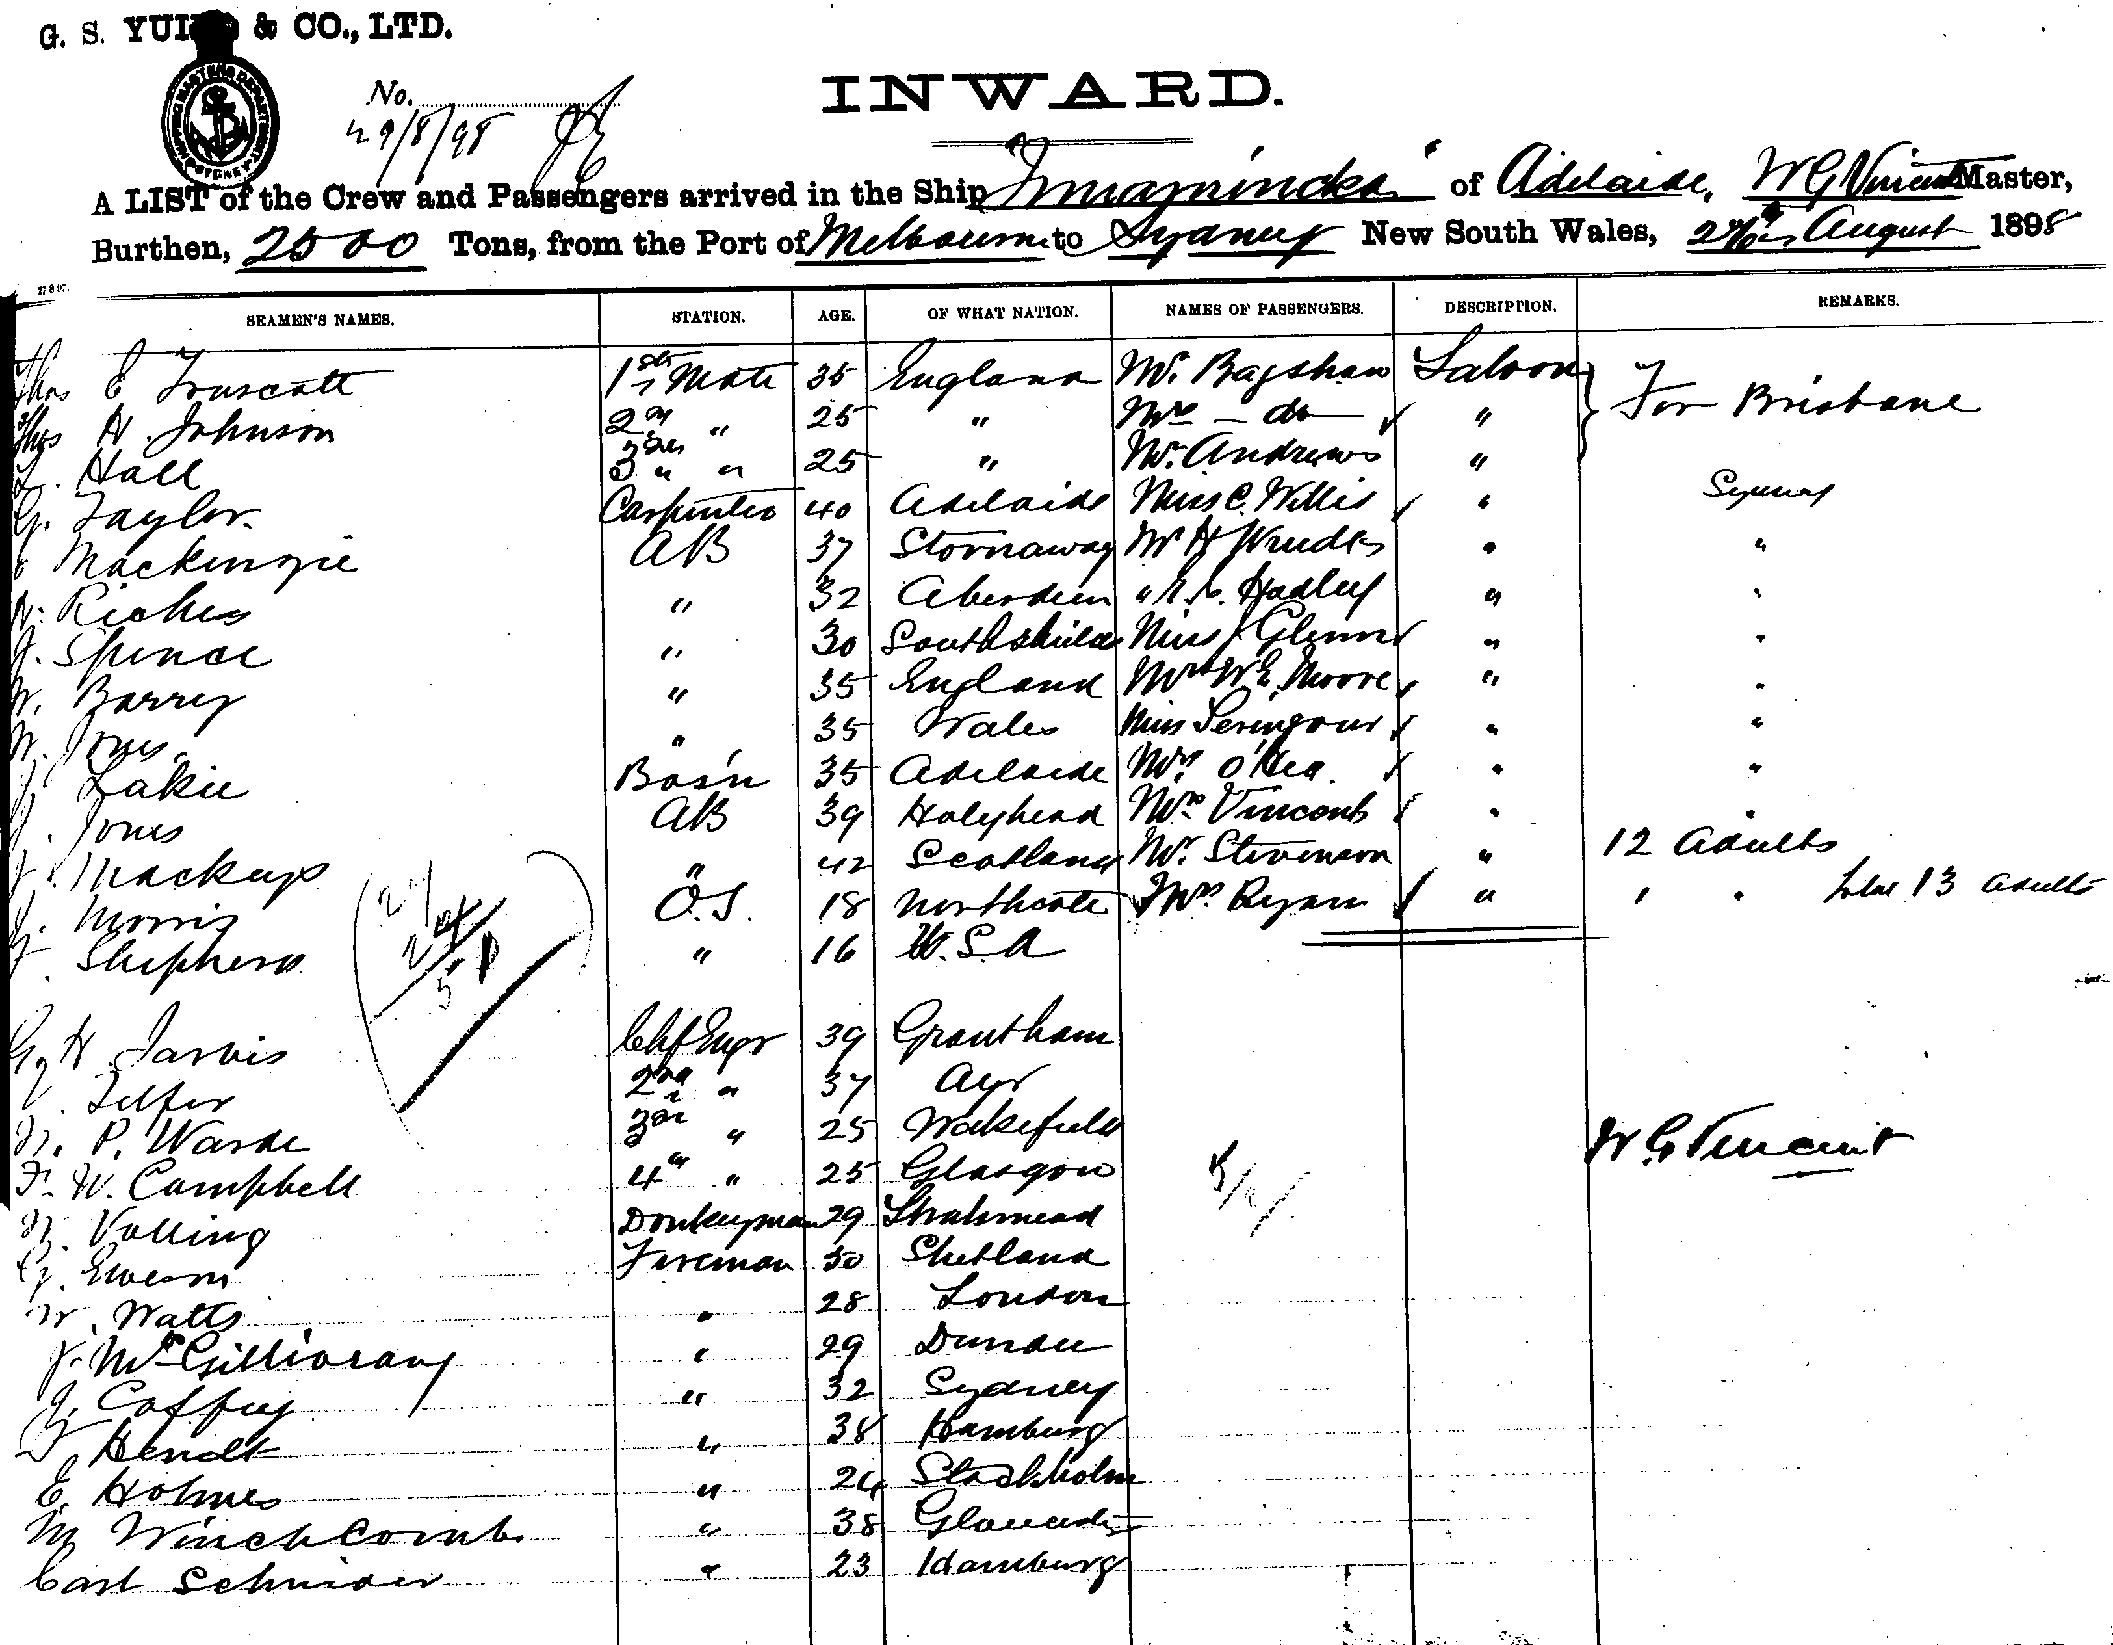 G. S. YUI & CO., LTD.
No.
29/8/98
INWARD.
A LIST of the Crew and Passengers arrived in the Ship "Innamincka" of Adelaide, W G Vincent Master,
Burthen, 2500 Tons, from the Port of Melbourne to Sydney New South Wales, August 1898
SEAMEN'S NAMES. STATION. AGE. OF WHAT NATION. NAMES OF PASSENGERS. DESCRIPTION. REMARKS.
Thos E Truscott 1st Mate 35 England Mr. Bagshaw Saloon For Brisbane
Thos H. Johnson 2nd " 25 " Mrs - do - "
Hall 3rd " " 25 " Mr. Andrews "
G. Taylor Carpenter 40 Adelaide Miss C. Willis " Sydney
Mackenzie AB 37 Stornaway Mr H " "
Riches " 32 Aberdeen " Hadley " "
J. Spence " 30 South Shields Miss J Glenn " "
W. Barry " 35 England Mrs W E Moore " "
W. Jones " 35 Wales Miss " "
J. Lakie Bos'n 35 Adelaide Mrs O'Hea " "
J. Jones AB 39 Holyhead Mrs Vincent " "
J. Mackay " 42 Scotland Mr. Stevenson " 12 Adults
J. Morris O.S. 18 Northcote Mrs Ryan " " " Total 13 adults
Shepherd " 16 U.S.A
G H Jarvis Chf Engr 39 Grantham
Telfer 2nd " 37 Ayr
P. Warde 3rd " 25 Wakefield
F. W. Campbell 4th " 25 Glasgow
Volling Donkeyman 29
G. Ewern Fireman 30 Shetland
W. Watts " 28 London
J. McGillivray " 29 Dundee
J. Coffey " 32 Sydney
Hendt " 38 Hamburg
E. Holmes " 24 Stockholm
M Winchcomb " 38 Gloucester
Carl Schnider " 23 Hamburg
W G Vincent